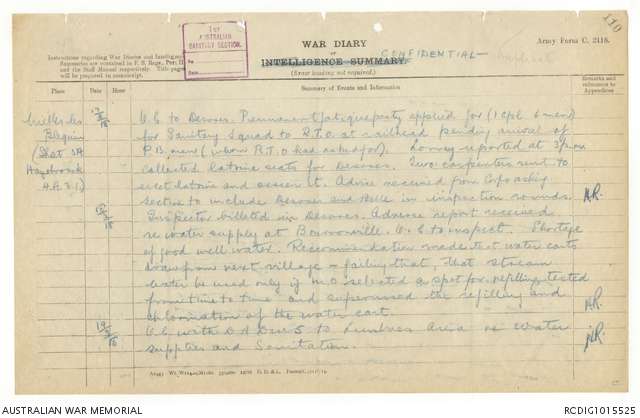 110
1ST
AUSTRALIAN
SANITARY SECTION.
No.
Date
WAR DIARY
OF
INTELLIGENCE SUMMARY.
CONFIDENTIAL
(Erase heading not required.)
Army Form C. 2118.
Instructions regarding War Diaries and Intelligence
Summaries are contained in F. S. Regs., Part II.
and the Staff Manual respectively. Title pages
will be prepared in manuscript.
Place
Date
Hour
Summary of Events and Information
Remarks and
references to
Appendices
O.C. to Desvres. Permanent fatigue party applied for (1 Cpl 6 men)
for Sanitary Squad to R.T.O. at railhead pending arrival of
P.B. men (whom R.T.O had asked for). Lorry reported at 3 p.m.
collected latrine seats for Desvres. Two carpenters sent to
erect latrine and assist. Advice received from Corps asking
section to include Desvres and in inspection rounds.
Inspector billeted in Desvres. Adverse report received
re water supply at Bournonville. O.C to inspect. Shortage
of good well water. Recommendation made that water carts
draw from next village - failing that, that stream
water be used only if M.O. selected a spot for refilling, tested
from time to time and supervised the refilling and
chlorination of the water cart.
O.C. with D.A.D.M.S to Lumbres Area re water
supplies and Sanitation.
(Sheet 5A
Hazebrouck
AUSTRALIAN WAR MEMORIAL
RCDIG1015525